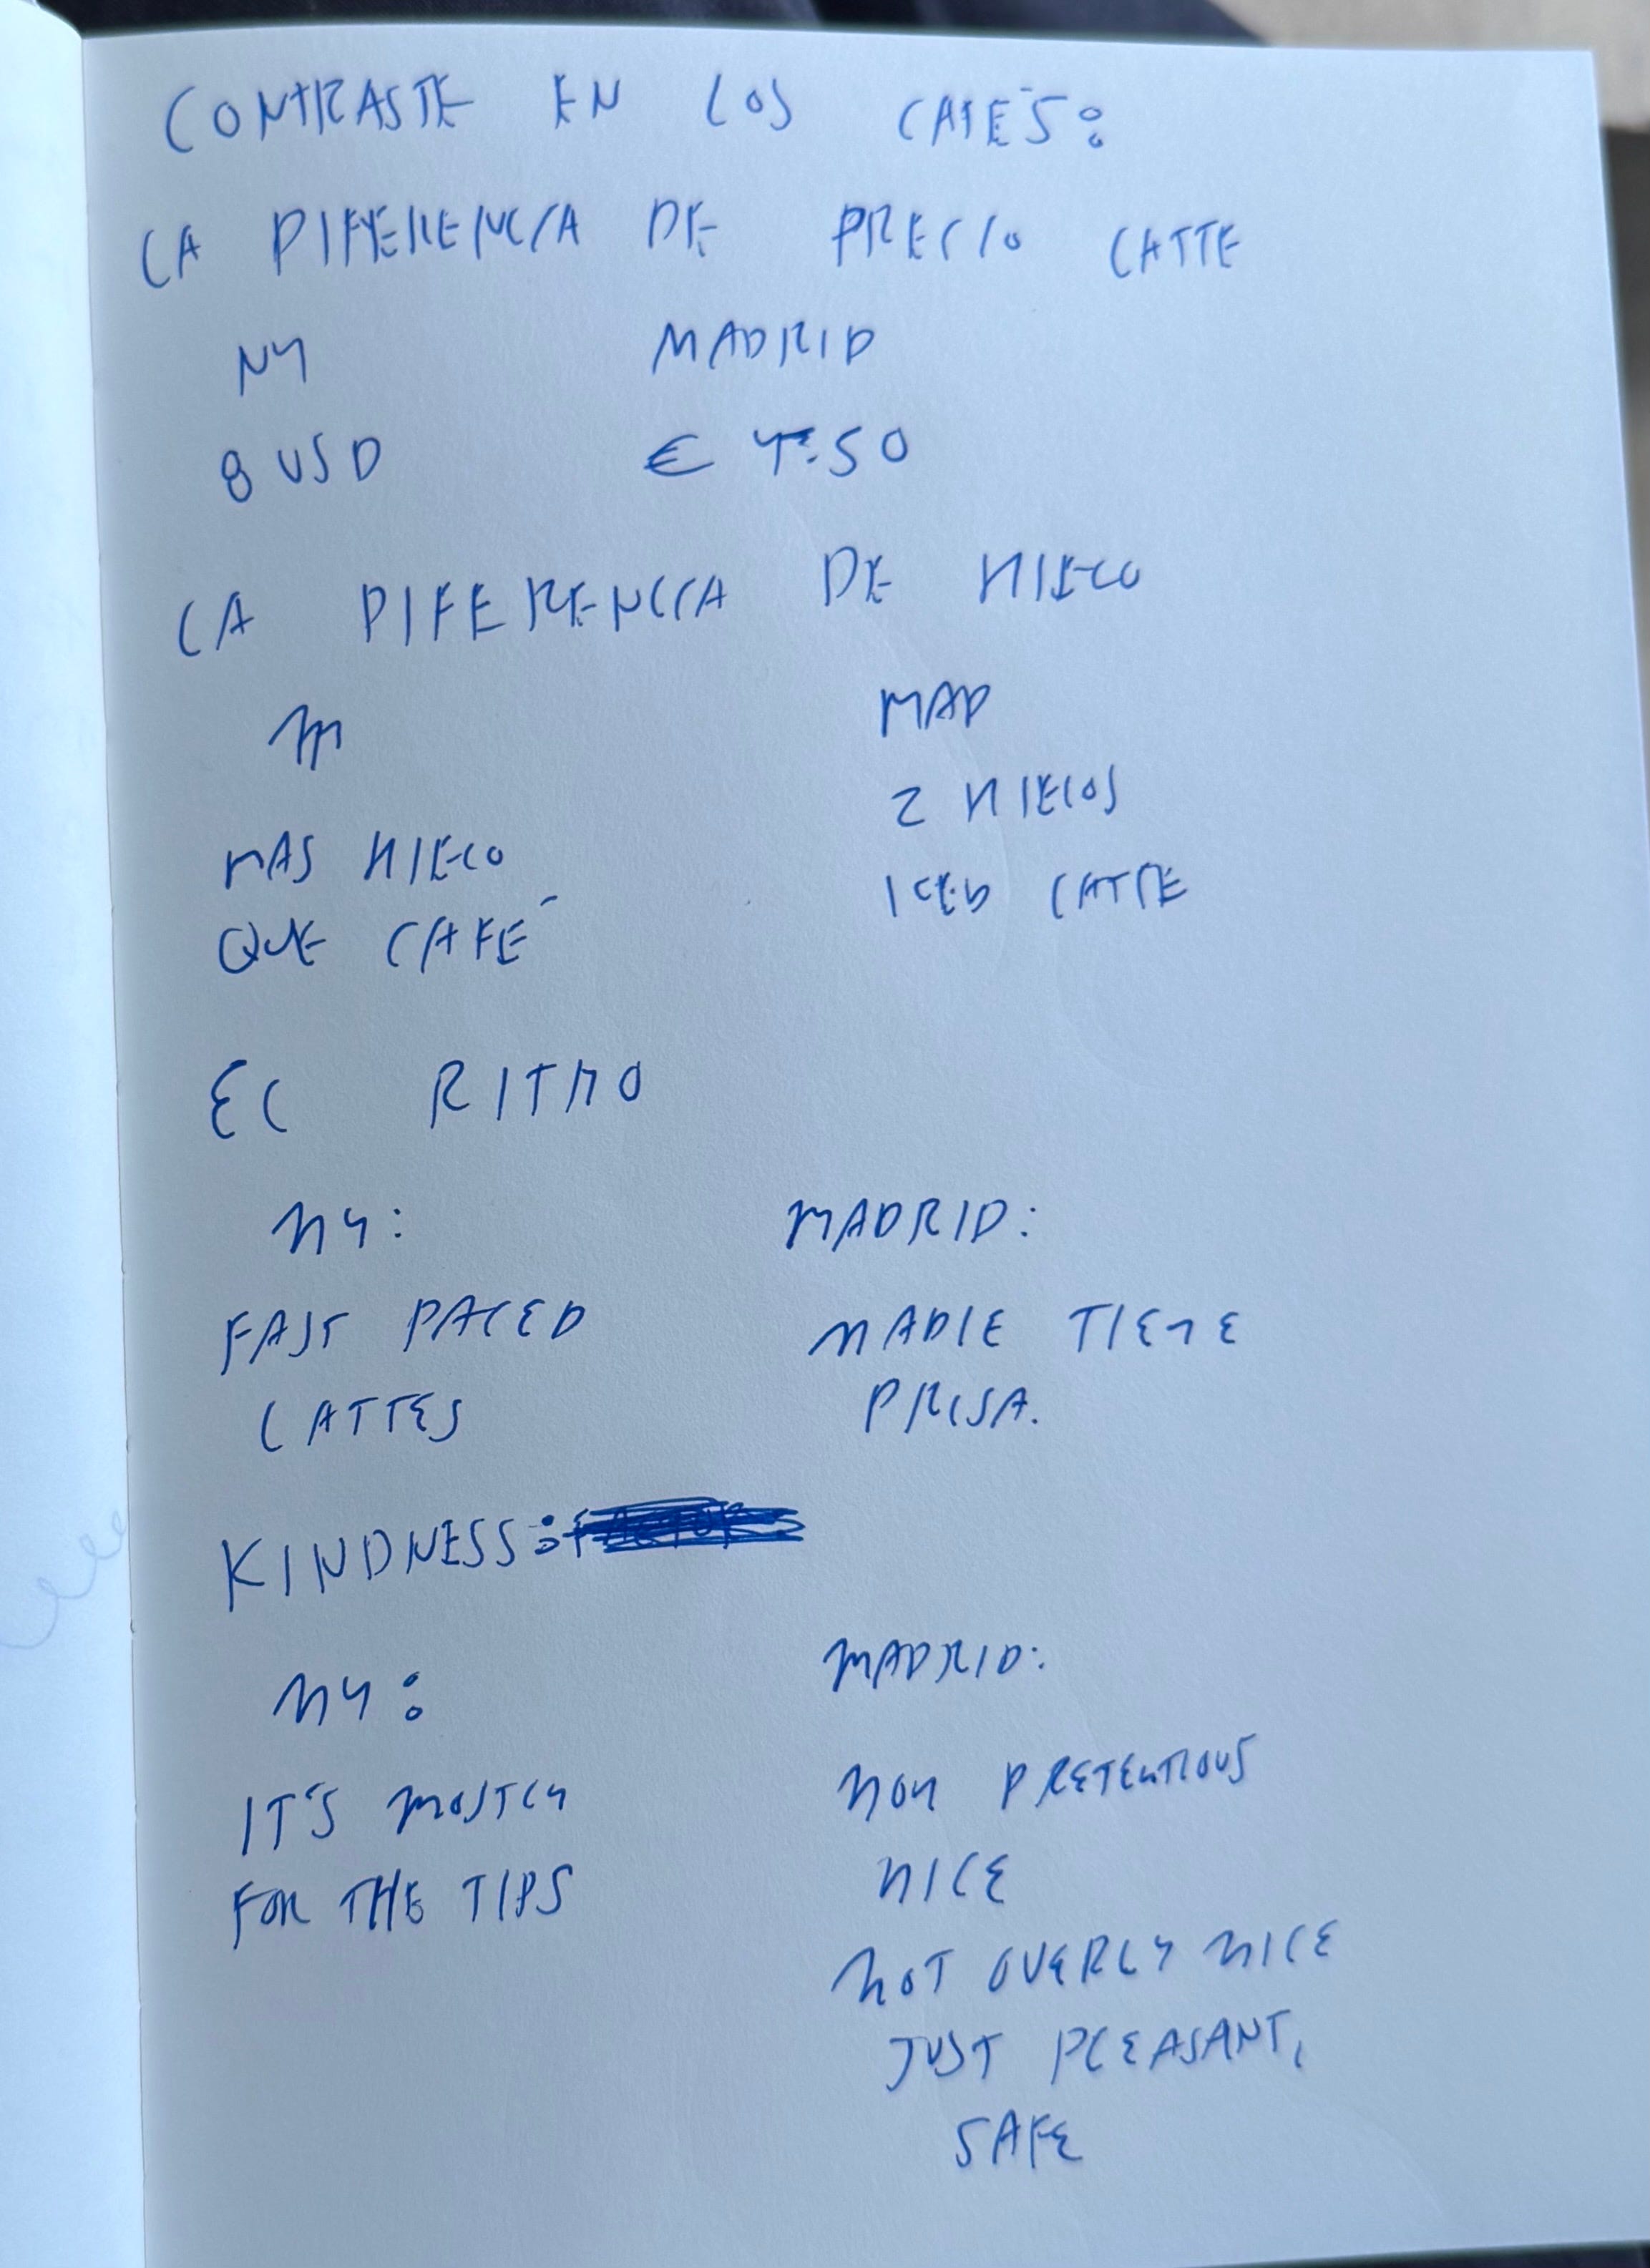 CONTRASTE EN LOS CAFÉS:
LA DIFERENCIA DE PRECIO LATTE
NY MADRID
8 USD € 4.50
LA DIFERENCIA DE HIELO
NY MAD
MAS HIELO
QUE CAFÉ
2 HIELOS
ICED LATTE
EL RITMO
NY: MADRID:
FAST PACED
LATTES
NADIE TIENE
PRISA.
KINDNESS:
NY: MADRID:
IT'S MOSTLY
FOR THE TIPS
NON PRETENTIOUS
NICE
NOT OVERLY NICE
JUST PLEASANT,
SAFE